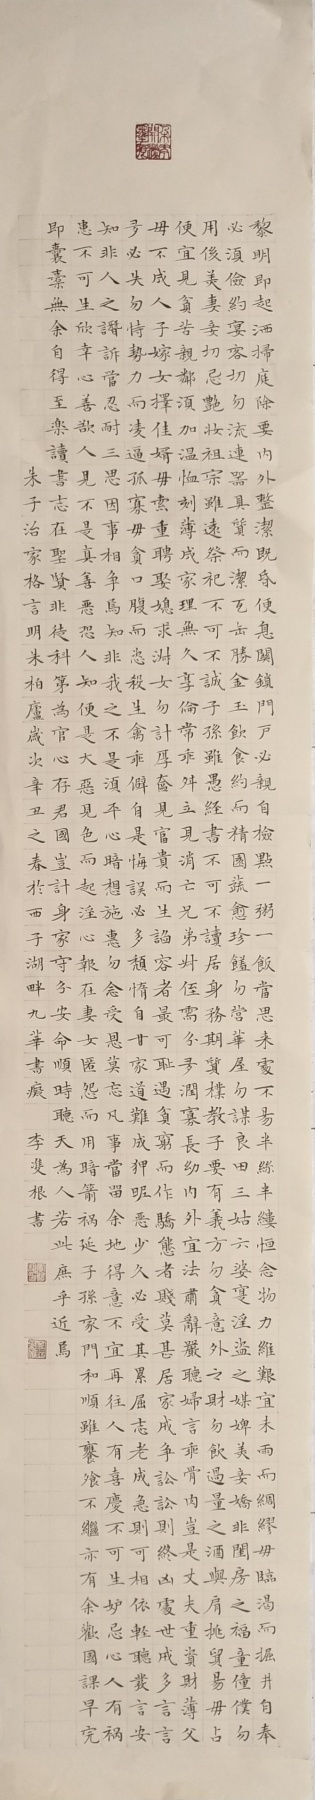 黎明即起洒掃庭除要内外整潔既昏便息關鎖門户必親自檢點一粥一飯當思来處不易半絲半縷恒念物力維艱宜未雨而綢繆毋臨渴而掘井自奉
必須儉約宴客切勿流連器具質而潔瓦缶勝金玉飲食約而精園蔬愈珍饈勿營華屋勿謀良田三姑六婆寔淫盗之媒婢美妾嬌非閨房之福童僮僕勿
用俊美妻妾切忌艷妝祖宗雖遠祭祀不可不誠子孫雖愚經書不可不讀居身務期質樸教子要有義方勿貪意外之財勿飲過量之酒與肩挑貿易毋占
便宜見貧苦親鄰須加温恤刻薄成家理無久享倫常乖舛立見消亡兄弟叔侄需分多潤寡長幼内外宜法肅辭嚴聽婦言乖骨肉豈是丈夫重資財薄父
毋不成人子嫁女擇佳婿毋索重聘娶媳求淑女勿計厚奩見富貴而生諂容者最可耻遇貧窮而作驕態者賤莫甚居家戒争訟訟則終凶處世戒多言言
多必失勿恃勢力而凌逼孤寡毋貪口腹而恣殺生禽乖僻自是悔誤必多頹惰自甘家道難成狎昵惡少久必受其累屈志老成急則可相依輕聽發言安
知非人之譖訴當忍耐三思因事相争焉知非我之不是須平心暗想施惠勿念受恩莫忘凡事當留余地得意不宜再往人有喜慶不可生妒忌心人有禍
患不可生欣幸心善欲人見不是真善惡恐人知便是大惡見色而起淫心報在妻女匿怨而用暗箭禍延子孫家門和順雖饔飧不繼亦有余歡國課早完
即囊橐無余自得至樂讀書志在聖賢非徒科第為官心存君國豈計身家守分安命順時聽天為人若此庶乎近焉
朱子治家格言明朱柏廬歲次辛丑之春於西子湖畔九華書癡 李根書